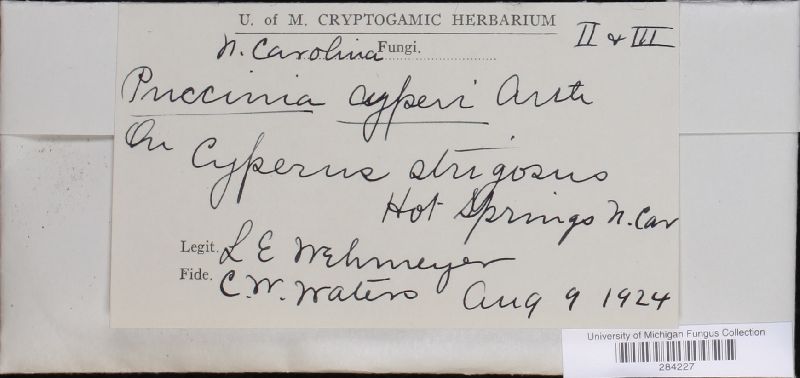 U. of M. CRYPTOGAMIC HERBARIUM
N. Carolina Fungi. II & III
Puccinia cyperi Arth
On Cyperus strigosus
Hot Springs N. Car
Legit. L E Wehmeyer
Fide. C. W. Waters Aug 9 1924
University of Michigan Fungus Collection
284227